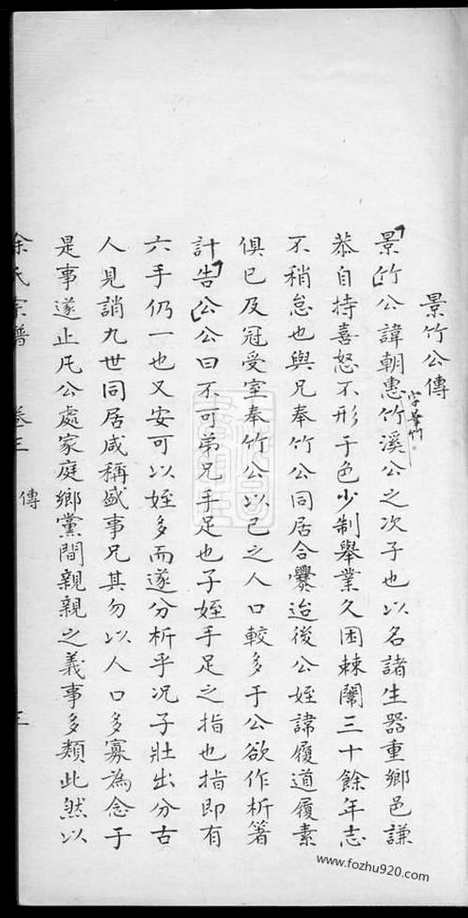 景竹公傳
景竹公諱朝惠竹溪公之次子也以名諸生器重鄉邑謙
字景竹
恭自持喜怒不形于色少制舉業久困棘闈三十餘年志
不稍怠也與兄奉竹公同居合爨迨後公姪諱履道履素
俱已及冠受室奉竹公以己之人口較多于公欲作析箸
計告公公曰不可弟兄手足也子姪手足之指也指即有
六手仍一也又安可以姪多而遂分析乎况子壯出分古
人見誚九世同居咸稱盛事兄其勿以人口多寡為念于
是事遂止凡公處家庭鄉黨間親親之義事多類此然以
余氏宗譜 卷三 傳 三
www.fozhu920.com